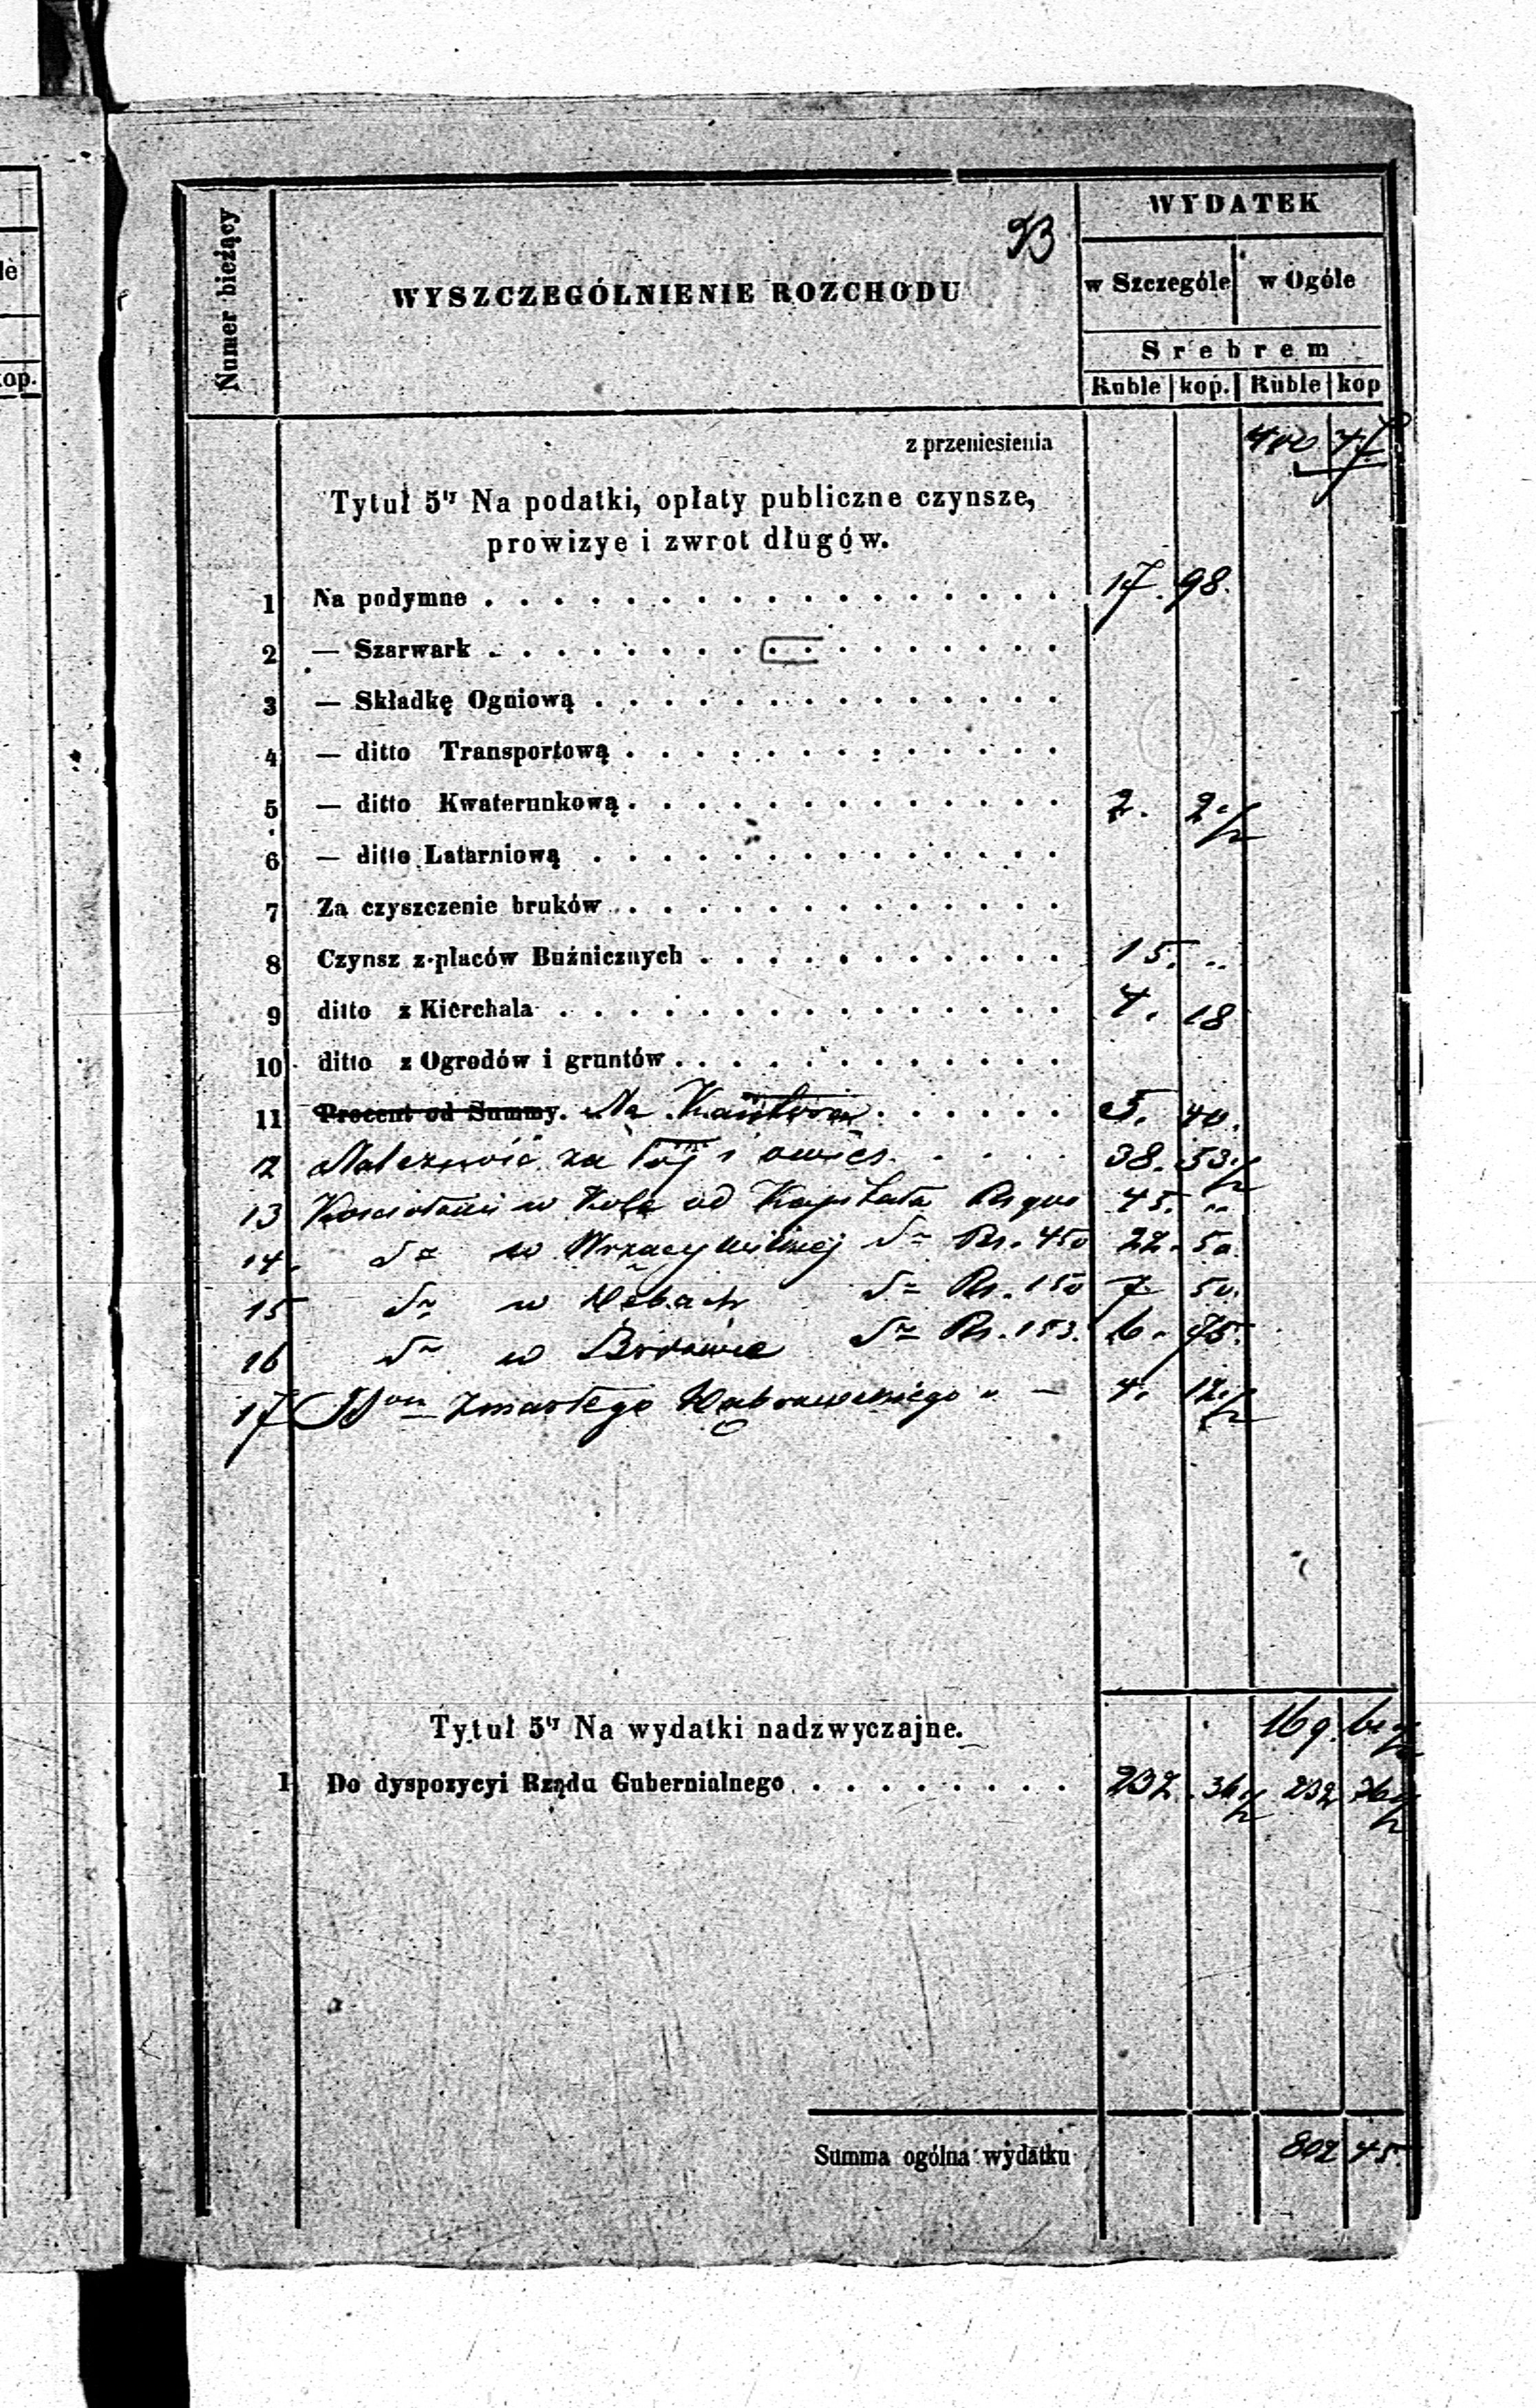 93
Numer bieżący
WYSZCZEGÓLNIENIE ROZCHODU
WYDATEK
w Szczególe w Ogóle
Srebrem
Ruble kop. Ruble kop
z przeniesienia 400 47
Tytuł 5ty Na podatki, opłaty publiczne czynsze,
prowizye i zwrot długów.
1 Na podymne 17. 98.
2 — Szarwark
3 — Składkę Ogniową
4 — ditto Transportową
5 — ditto Kwaterunkową 2. 2 1/2
6 — ditto Latarniową
7 Za czyszczenie bruków
8 Czynsz z placów Buźnicznych 15. "
9 ditto z Kierchala 4. 18
10 ditto z Ogrodów i gruntów
11 Procent od Summy. Na 5. 40.
12 Należność za łój i owies 38. 53 1/2
13 Kościołowi w Kole od Kapitału Rs 900 45. "
14. do w Wrzący wielkiej do Rs. 450 22. 50.
15 do w Dębach do Rs. 150 7 50.
16 do w Brdowie do Rs. 153. 6. 75.
17 zmarłego 4. 12 1/2
169. 1/2
Tytuł 5ty Na wydatki nadzwyczajne.
1 Do dyspozycyi Rządu Gubernialnego 232. 36 1/2 232 36 1/2
Summa ogólna wydatku 802 45.
le
kop.